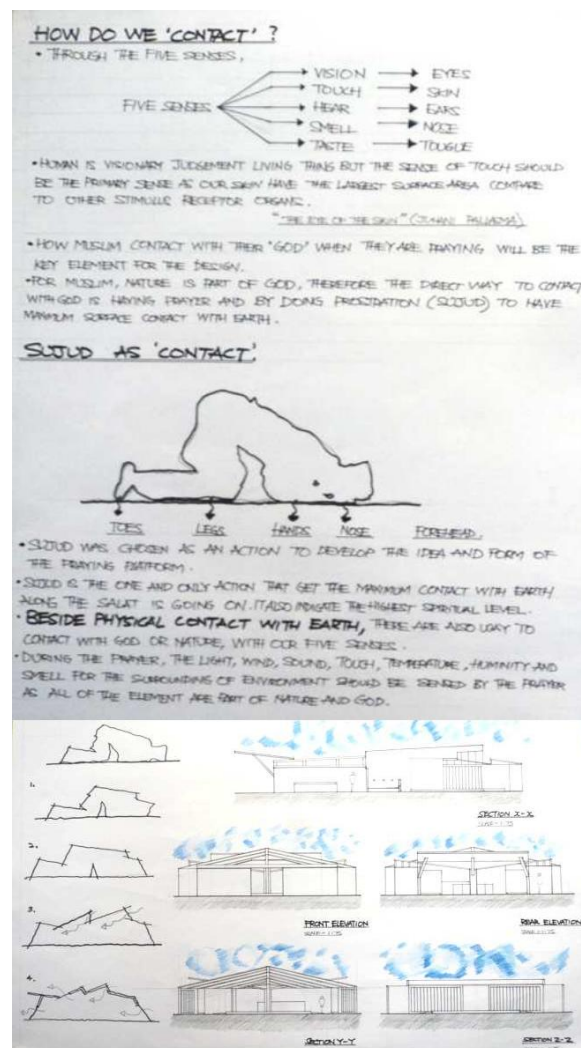 HOW DO WE 'CONTACT' ?
• THROUGH THE FIVE SENSES,
FIVE SENSES
VISION EYES
TOUCH SKIN
HEAR EARS
SMELL NOSE
TASTE TOUGUE
• HUMAN IS VISIONARY JUDGEMENT LIVING THING BUT THE SENSE OF TOUCH SHOULD
BE THE PRIMARY SENSE AS OUR SKIN HAVE THE LARGEST SURFACE AREA COMPARE
TO OTHER STIMULUS RECEPTOR ORGANS.
"THE EYE OF THE SKIN" (JUHANI PALLASMA)
• HOW MUSLIM CONTACT WITH THEIR 'GOD' WHEN THEY ARE PRAYING WILL BE THE
KEY ELEMENT FOR THE DESIGN.
• FOR MUSLIM, NATURE IS PART OF GOD, THEREFORE THE DIRECT WAY TO CONTACT
WITH GOD IS HAVING PRAYER AND BY DOING PROSTRATION (SUJUD) TO HAVE
MAXIMUM SURFACE CONTACT WITH EARTH.
SUJUD AS 'CONTACT'
TOES LEGS HANDS NOSE FOREHEAD.
• SUJUD WAS CHOSEN AS AN ACTION TO DEVELOP THE IDEA AND FORM OF
THE PRAYING PLATFORM.
• SUJUD IS THE ONE AND ONLY ACTION THAT GET THE MAXIMUM CONTACT WITH EARTH
ALONG THE SALAT IS GOING ON. IT ALSO INDICATE THE HIGHEST SPIRITUAL LEVEL.
• BESIDE PHYSICAL CONTACT WITH EARTH, THERE ARE ALSO WAY TO
CONTACT WITH GOD OR NATURE, WITH OUR FIVE SENSES.
• DURING THE PRAYER, THE LIGHT, WIND, SOUND, TOUCH, TEMPERATURE, HUMINITY AND
SMELL FOR THE SURROUNDING OF ENVIRONMENT SHOULD BE SENSED BY THE PRAYER
AS ALL OF THE ELEMENT ARE PART OF NATURE AND GOD.
1.
SECTION X-X
2.
3.
FRONT ELEVATION
REAR ELEVATION
4.
SECTION Y-Y
SECTION Z-Z